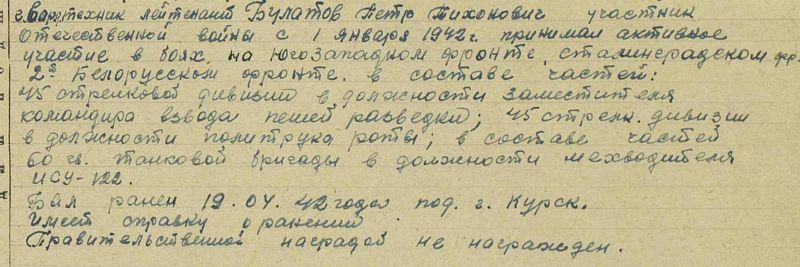 Гвардтехник лейтенант Булатов Петр Тихонович участник
Отечественной войны с 1 января 1942г. принимал активное
участие в боях, на Югозападном фронте, сталинградском фр.
2ом Белорусском фронте. в составе частей:
45 стрелковой дивизии в должности заместителя
командира взвода пешей разведки; 45 стрелк. дивизии
в должности политрука роты; в составе частей
60 гв. танковой бригады в должности мехводителя
ИСУ-122.
Был ранен 19.04.42 года под. г. Курск.
Имеет справку о ранении.
Правительственной наградой не награжден.